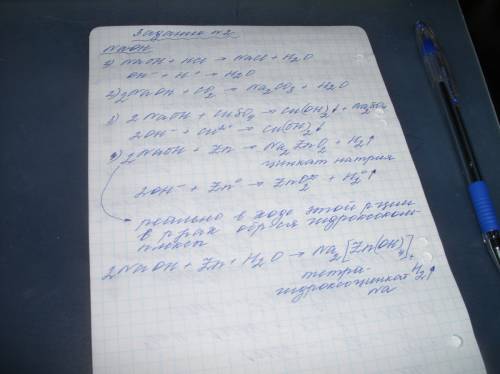 Задание №2
NaOH
1) NaOH + HCl → NaCl + H2O
OH⁻ + H⁺ → H2O
2) 2NaOH + CO2 → Na2CO3 + H2O
3) 2NaOH + CuSO4 → Cu(OH)2↓ + Na2SO4
2OH⁻ + Cu²⁺ → Cu(OH)2↓
4) 2NaOH + Zn → Na2ZnO2 + H2↑
цинкат натрия
2OH⁻ + Zn⁰ → ZnO2²⁻ + H2⁰↑
реально в ходе этой р-ции
в р-рах образ-ся гидроксоком-
плексы
2NaOH + Zn + H2O → Na2[Zn(OH)4] +
тетра- H2↑
гидроксоцинкат
Na